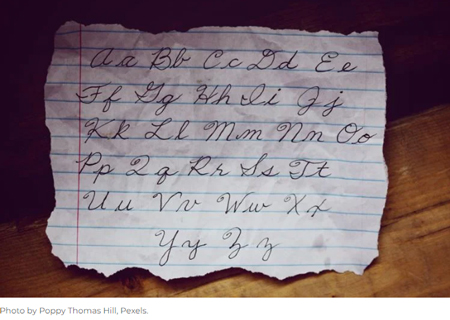 Aa Bb Cc Dd Ee
Ff Gg Hh Ii Jj
Kk Ll Mm Nn Oo
Pp Qq Rr Ss Tt
Uu Vv Ww Xx
Yy Zz
Photo by Poppy Thomas Hill, Pexels.